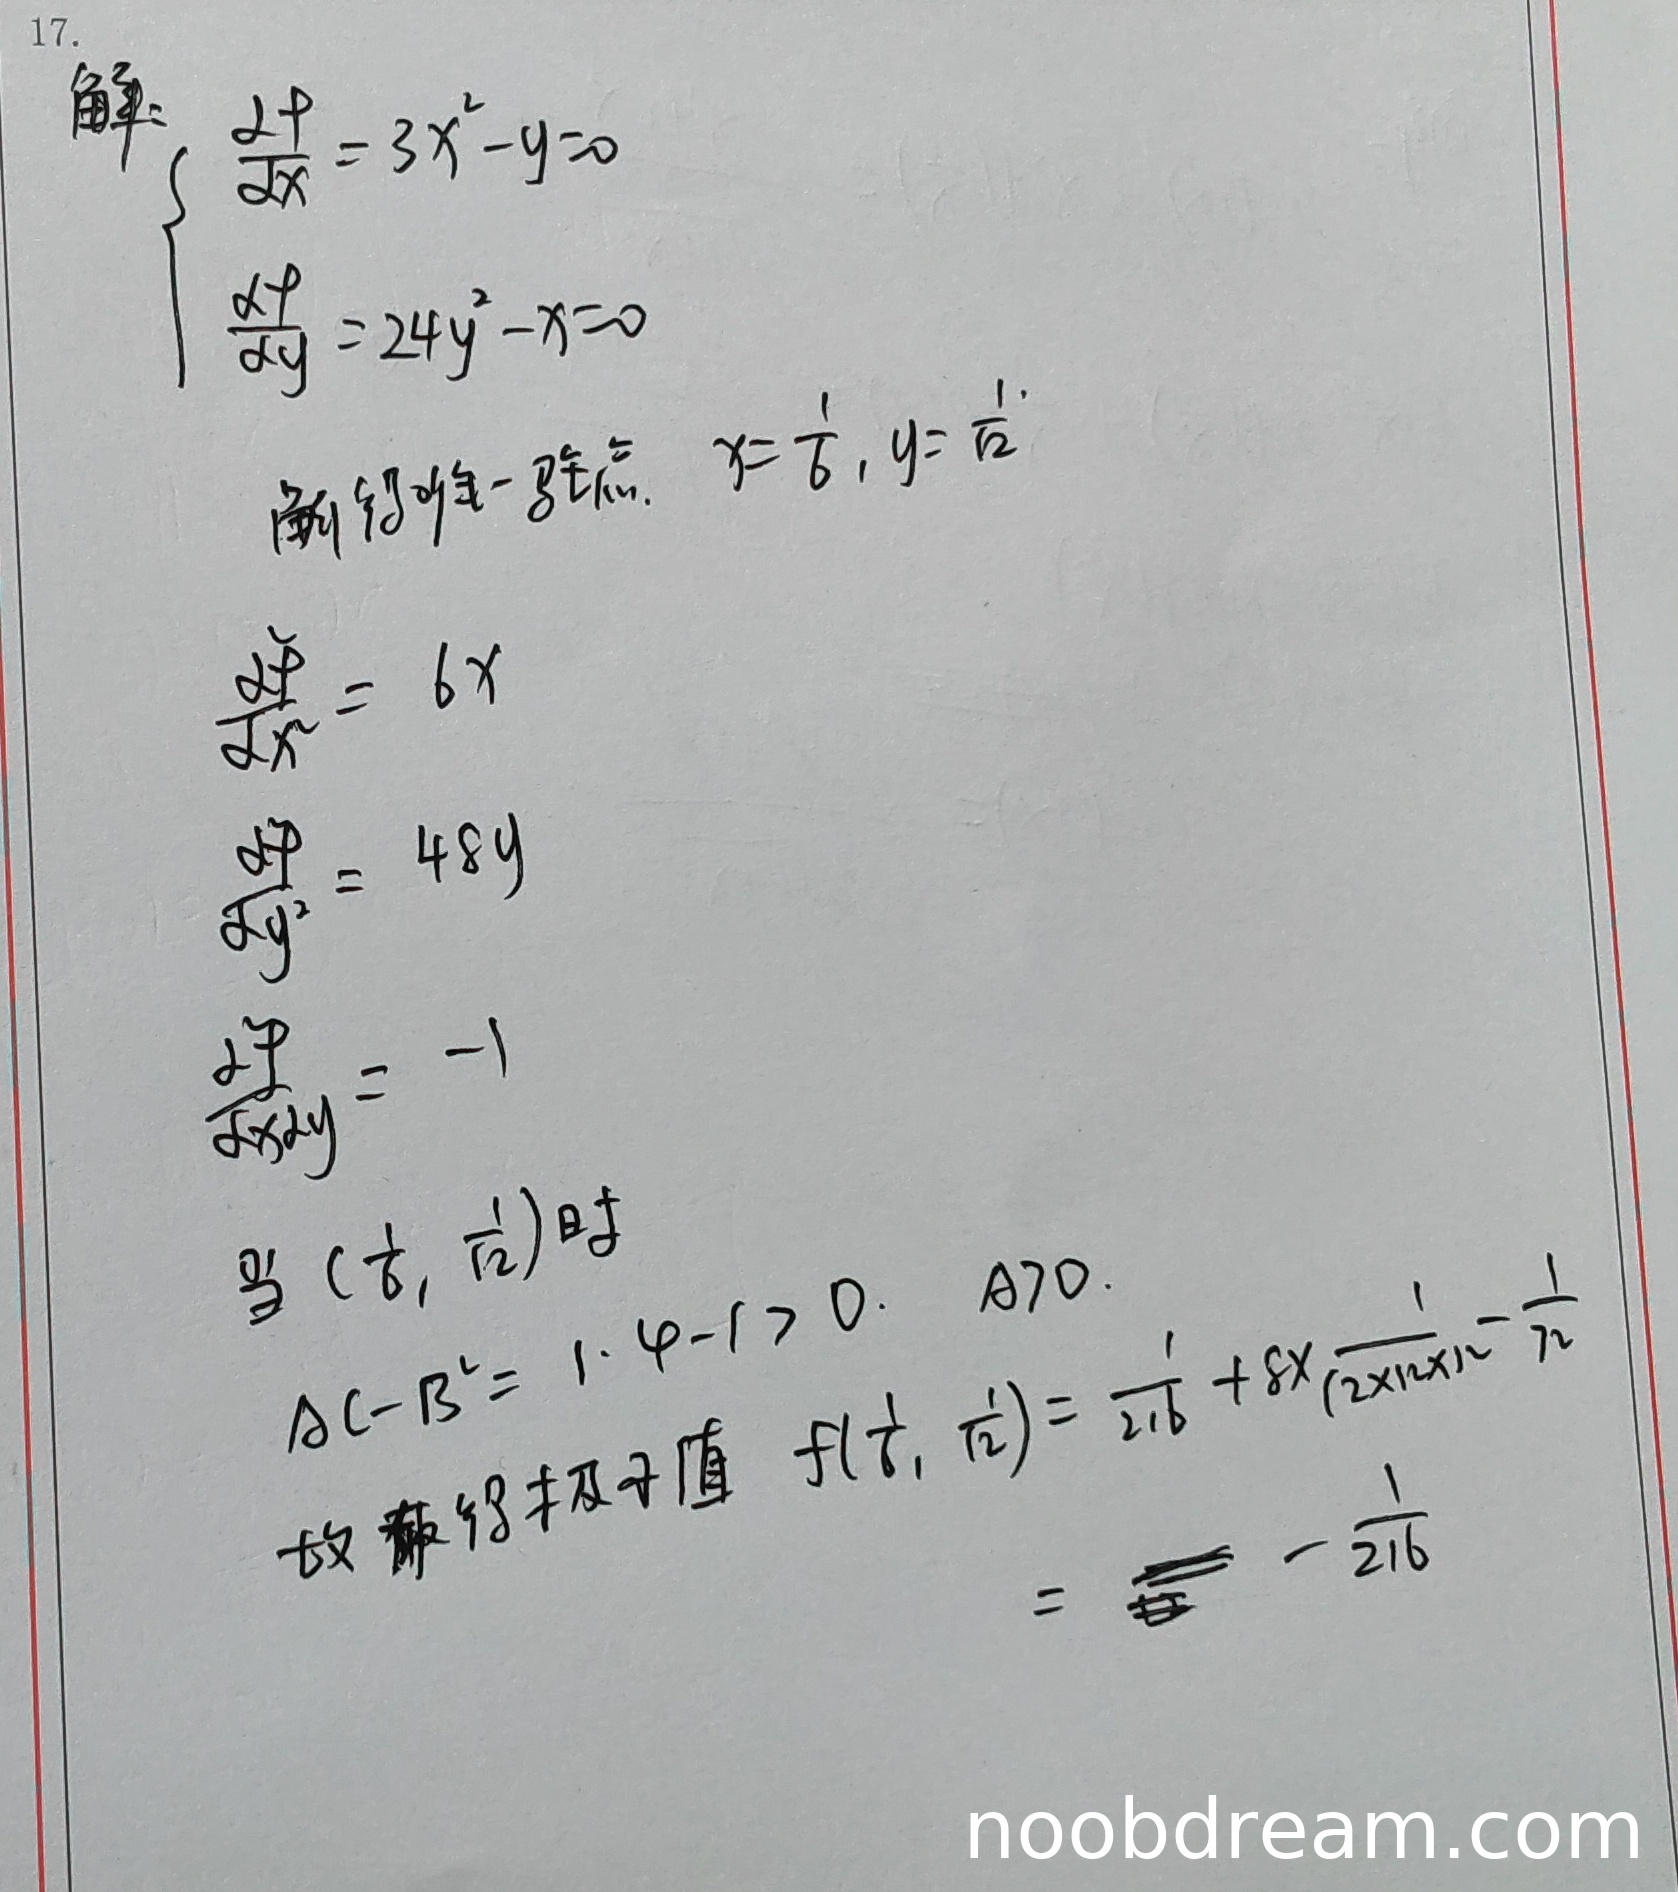 17.
解:
∂f/∂x = 3x² - y = 0
∂f/∂y = 24y² - x = 0
解得唯一驻点. x = 1/6, y = 1/12.
∂²f/∂x² = 6x
∂²f/∂y² = 48y
∂²f/∂x∂y = -1
当 (1/6, 1/12) 时
AC - B² = 1·4 - 1 > 0. A > 0.
故 得极小值 f(1/6, 1/12) = 1/216 + 8 × 1/(12×12×12) - 1/72
= - 1/216
noobdream.com